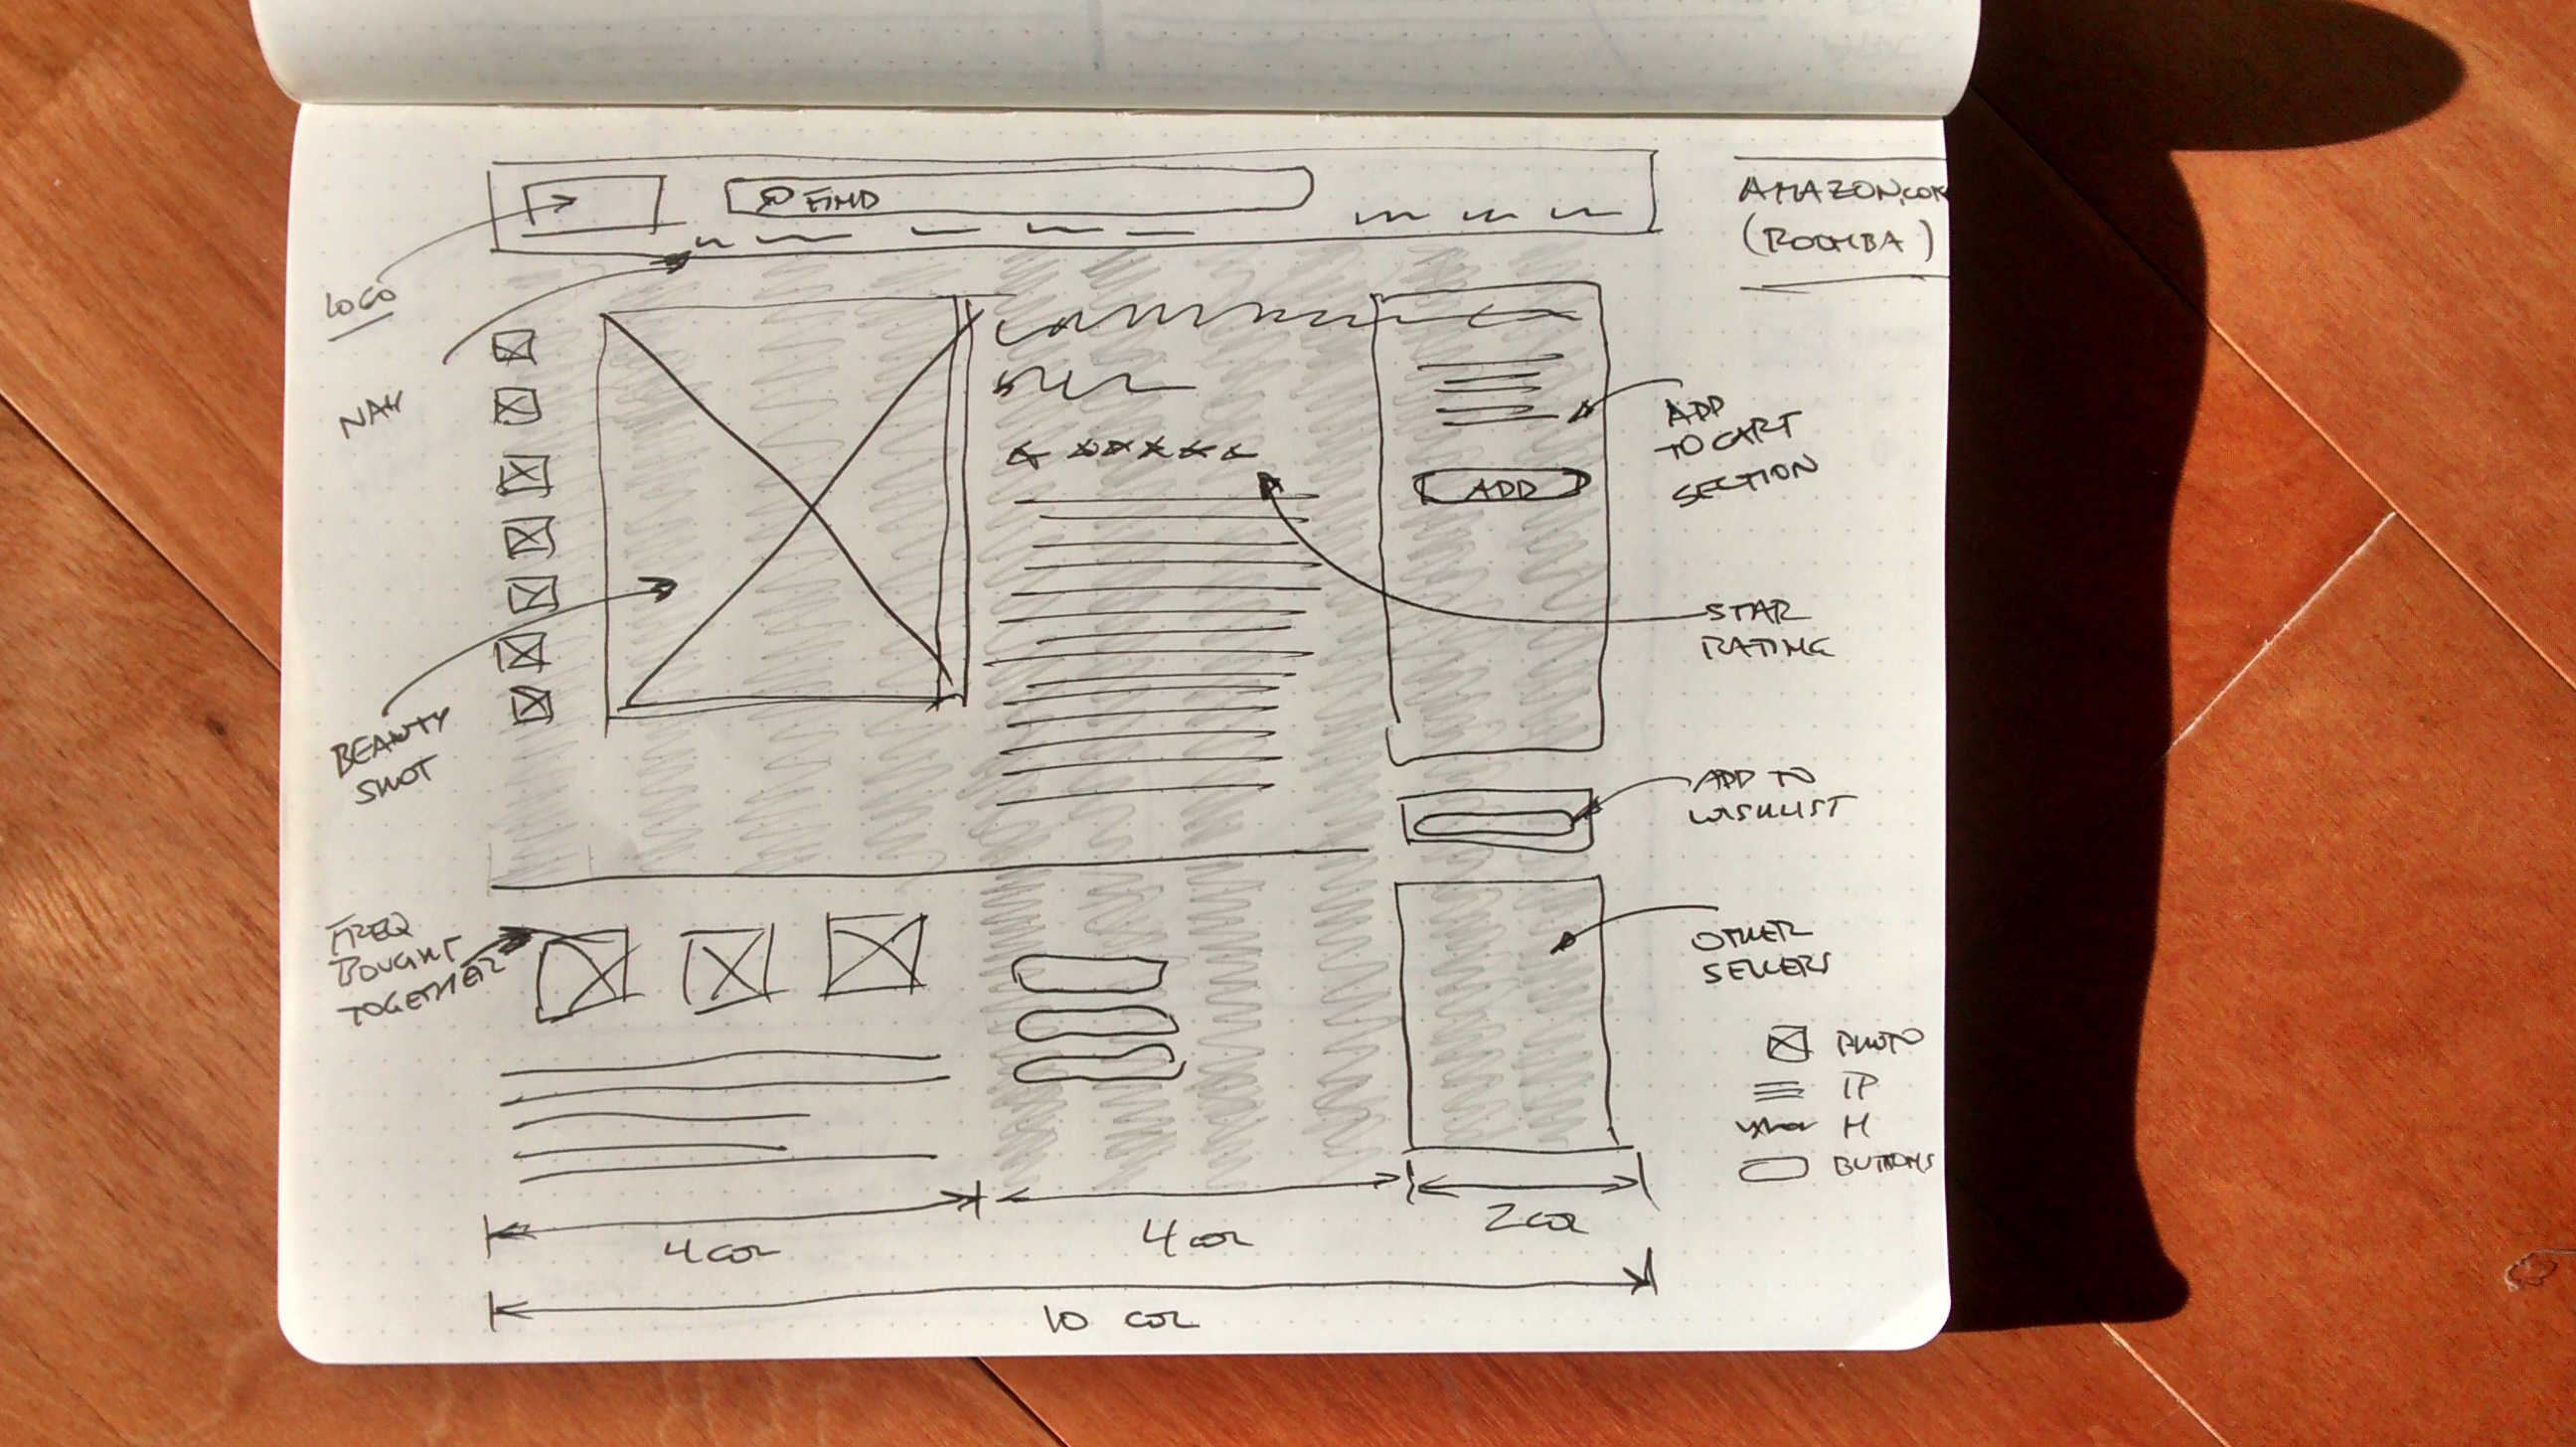 FIND
AMAZON.COM
(ROOMBA)
LOGO
NAV
ADD
TO CART
SECTION
ADD
STAR
RATING
BEAUTY
SHOT
ADD TO
WISHLIST
FREQ
BOUGHT
TOGETHER
OTHER
SELLERS
PHOTO
P
H
BUTTONS
4 COL
4 COL
2 COL
10 COL